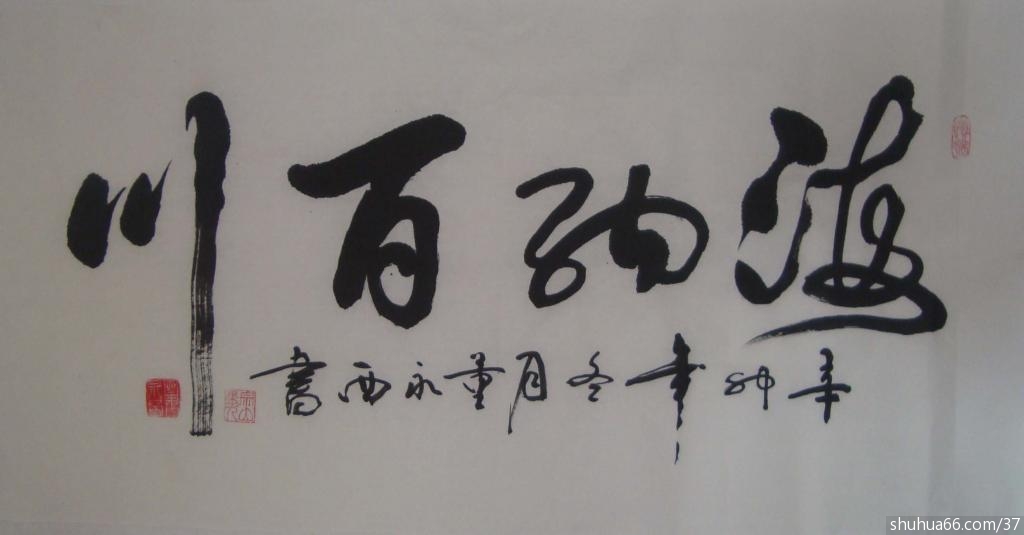 海纳百川
辛卯年冬月董永西書
shuhua66.com/37